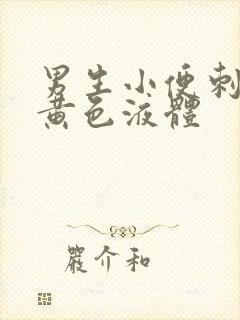 男生小便刺
黄色液體
嚴介和